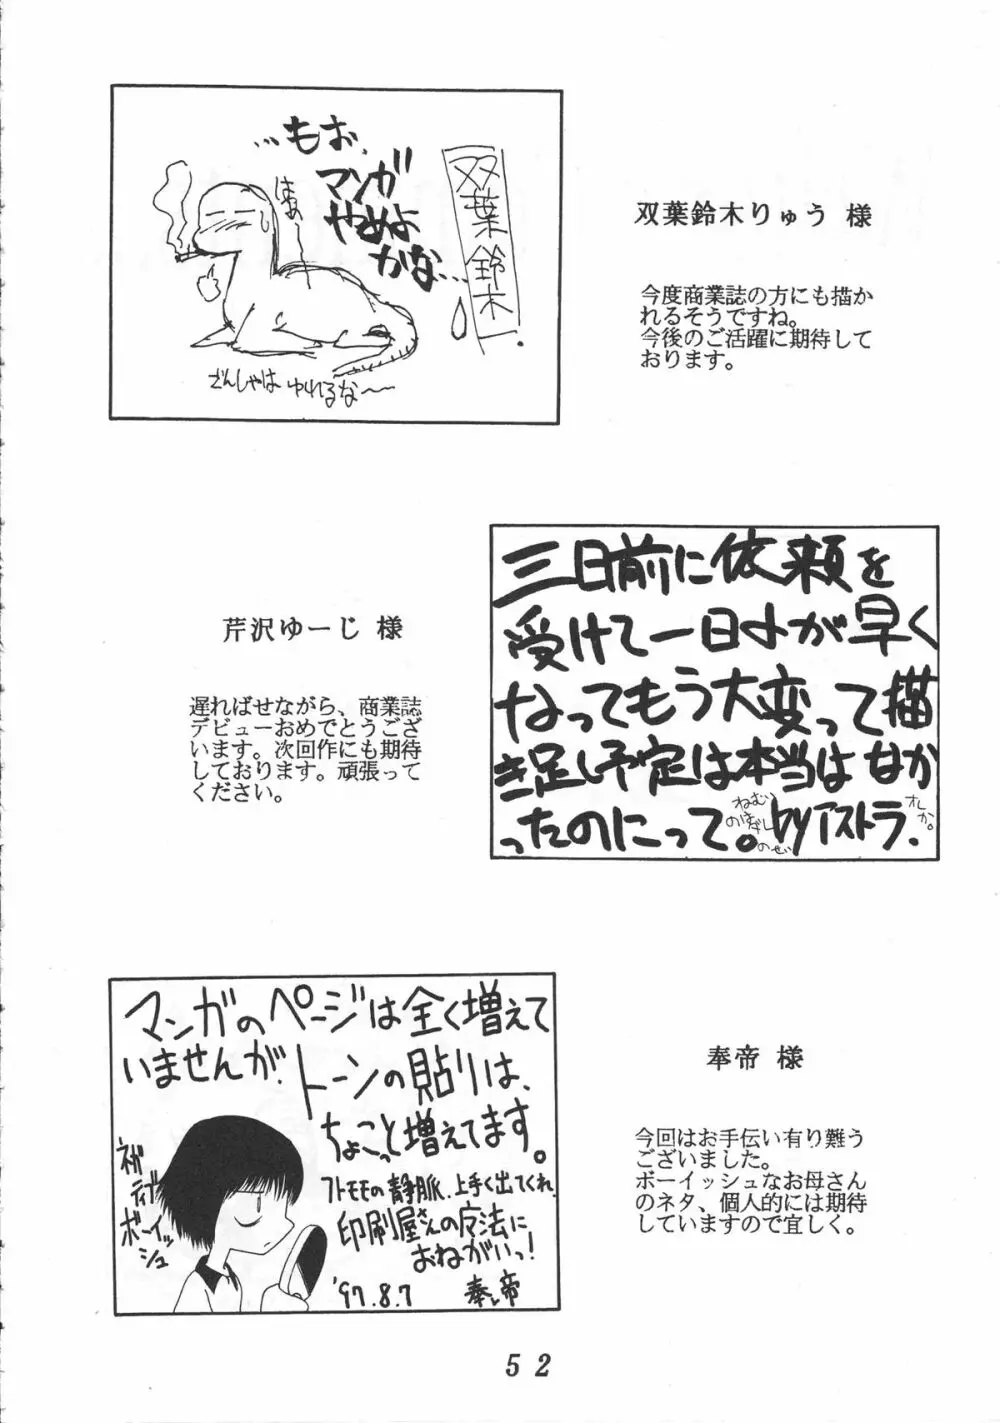 …もお、
マンガ
やめよ
かな…
双葉鈴木
ざんしゃは ゆれるな〜
双葉鈴木りゅう 様
今度商業誌の方にも描か
れるそうですね。
今後のご活躍に期待して
おります。
三日前に依頼を
受けて一日〆が早く
なってもう大変って描
き足し予定は本当はなか
ったのにって。byアストラ.
芹沢ゆーじ 様
遅ればせながら、商業誌
デビューおめでとうござ
います。次回作にも期待
しております。頑張って
ください。
マンガのページは全く増えて
いませんが、
トーンの貼りは、
ちょこっと増えてます。
フトモモの静脈、上手く出てくれ、
印刷屋さんの魔法に
おねがいっ!
'97.8.7
奉帝
祝
ボーイッシュ
奉帝 様
今回はお手伝い有り難う
ございました。
ボーイッシュなお母さん
のネタ、個人的には期待
していますので宜しく。
52